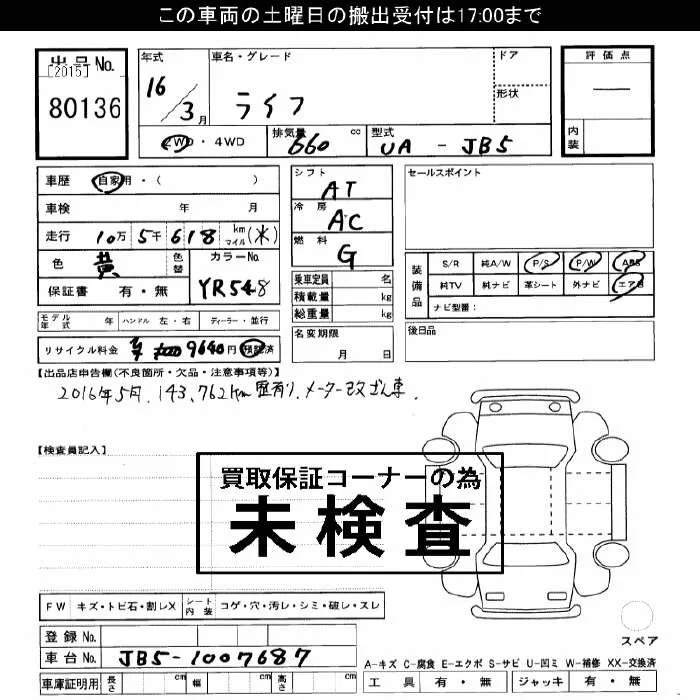 この車両の土曜日の搬出受付は17:00まで
出品No.
[2015]
80136
年式
16/3月
車名・グレード
ライフ
ドア
形状
評価点
―
内装
2WD・4WD
排気量 660 cc
型式 UA - JB5
車歴 自家用・( )
車検 年 月
走行 10万5千618 km マイル (米)
色 黄 色替
カラーNo. YR548
保証書 有・無
シフト AT
冷房 AC
燃料 G
乗車定員 名
積載量 kg
総重量 kg
セールスポイント
装備品
S/R 純A/W P/S P/W ABS
純TV 純ナビ 革シート 外ナビ エアB
ナビ型番:
モデル年式 年 ハンドル 左・右 ディーラー・並行
名変期限 月 日
後日品
リサイクル料金 9640円 預託済
【出品店申告欄(不良箇所・欠品・注意事項等)】
2016年5月、143,762km 歴有り、メーター改ざん車.
【検査員記入】
買取保証コーナーの為
未検査
FW キズ・トビ石・割レX シート内装 コゲ・穴・汚レ・シミ・破レ・スレ
スペア
登録No.
車台No. JB5-1007687
A-キズ C-腐食 E-エクボ S-サビ U-凹ミ W-補修 XX-交換済
車庫証明用 長さ cm 幅 cm 高さ cm
工具 有・無 ジャッキ 有・無